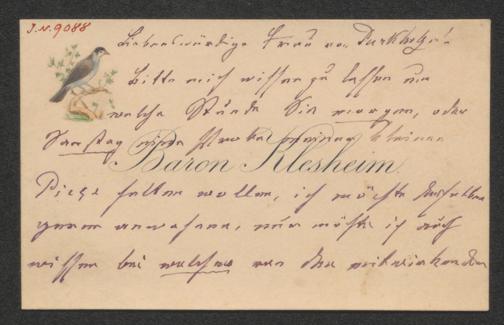 I.N. 9088
Liebenswürdige Frau von
Bitte mich wissen zu lassen um
welche Stunde Sie morgen, oder
Samstag eine Probe meiner kleinen
Baron Klesheim.
Piece halten wollen, ich möchte derselben
gerne anwohnen, nur möchte ich auch
wissen bei welcher von den mitwirkenden